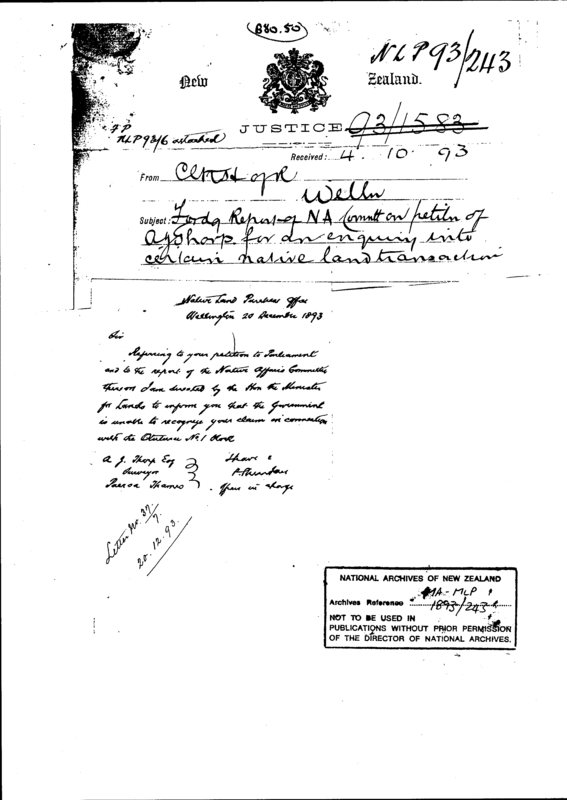 B80.50
NLP 93/243
New Zealand.
JUSTICE 93/1583
NLP 93/6 attached
Received: 4. 10. 93
From Clk H of R
Welln
Subject: Fordg Report of NA Committ on petitn of
A J Thorp for an enquiry into
certain native land transaction
Native Land Purchase Office
Wellington 20 December 1893
Sir
Referring to your petition to Parliament
and to the report of the Native Affairs Committee
thereon I am directed by the Hon the Minister
for Lands to inform you that the Government
is unable to recognise your claim in connection
with the No. 1 Block
A. J. Thorp Esq I have &
Surveyor P Sheridan
Paeroa Thames Officer in charge
Letter No. 37/7
20.12.93.
NATIONAL ARCHIVES OF NEW ZEALAND
Archives Reference MA-MLP 1
1893/243
NOT TO BE USED IN
PUBLICATIONS WITHOUT PRIOR PERMISSION
OF THE DIRECTOR OF NATIONAL ARCHIVES.